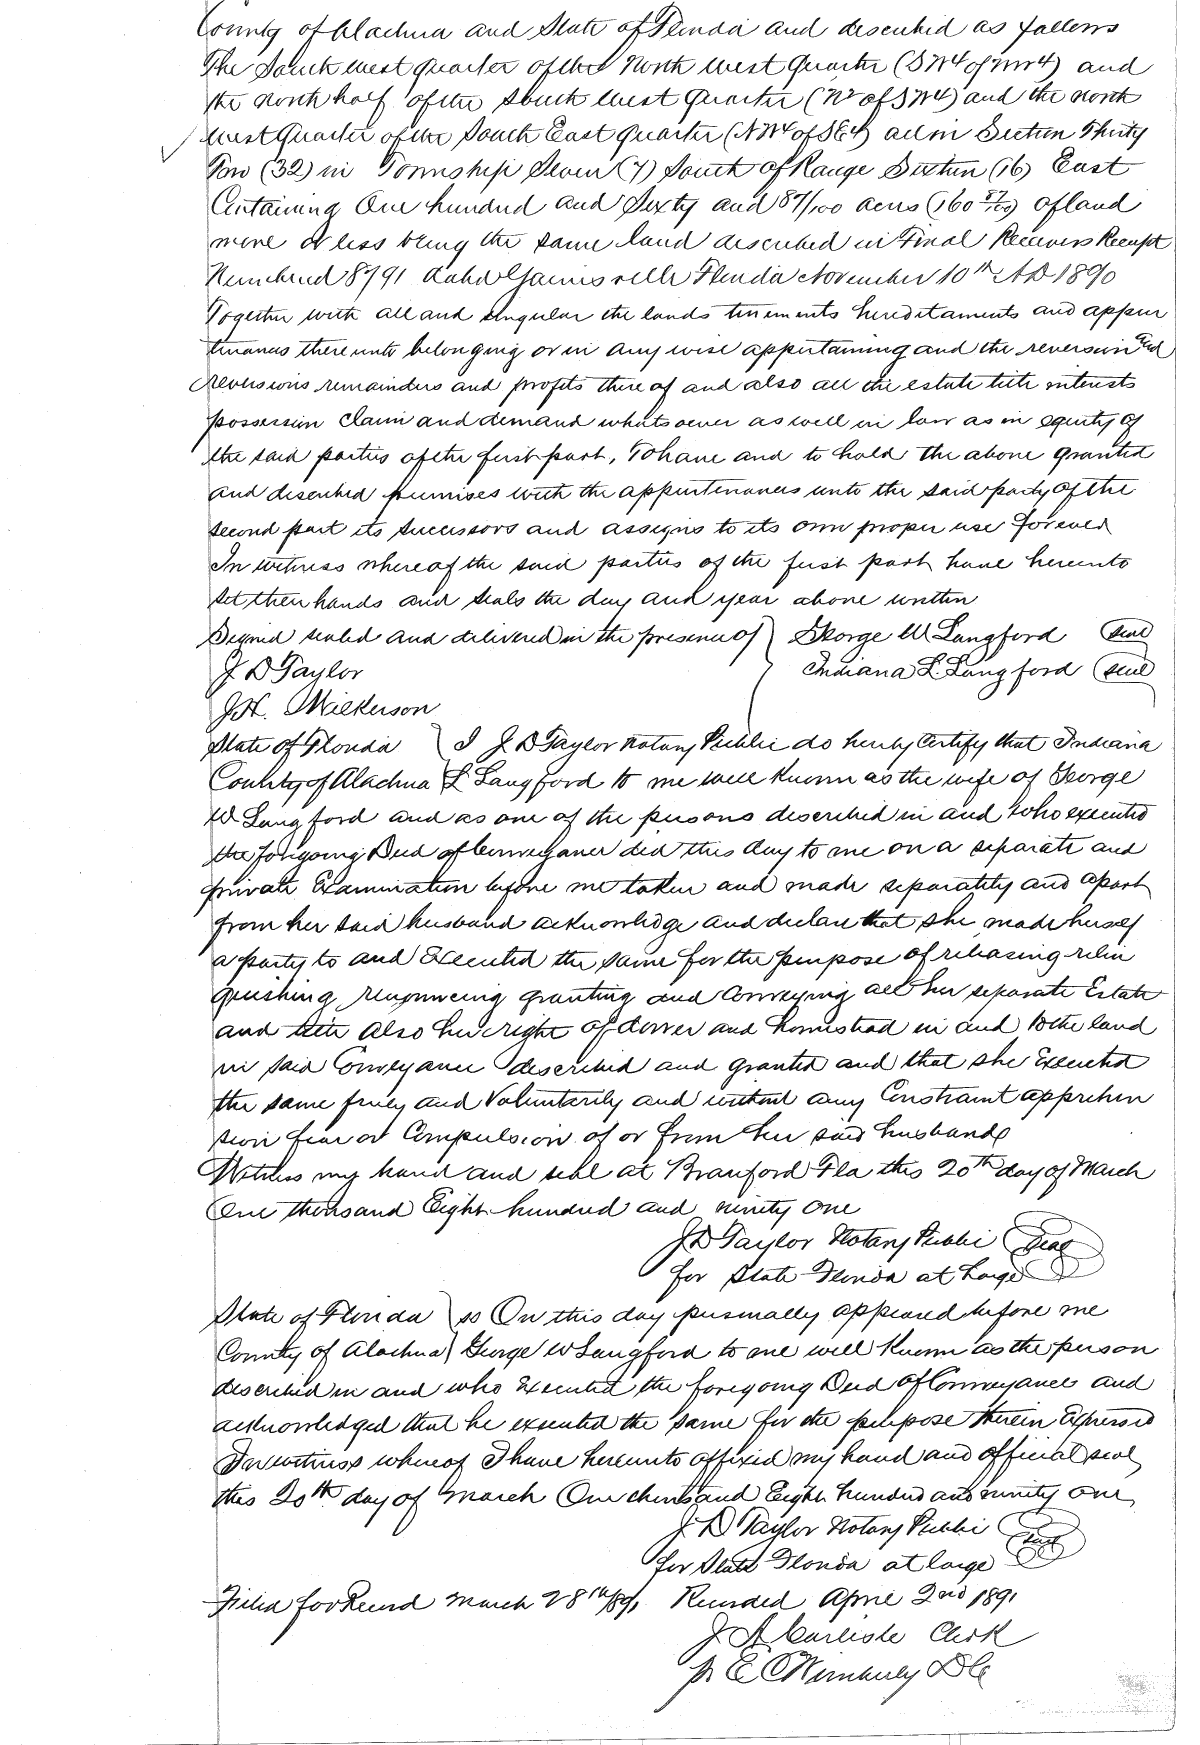 County of Alachua and State of Florida and described as follows
The South west quarter of the North west Quarter (SW4 of NW4) and
the north half of the South West Quarter (N2 of SW4) and the north
West Quarter of the South East quarter (NW4 of SE4) all in Section Thirty
Two (32) in Township Seven (7) South of Range Sixteen (16) East
Containing One hundred and Sixty and 87/100 acres (160 87/100) of land
more or less being the same land described in Final Receivers Receipt
Numbered 8791 dated Gainesville Florida November 10th AD 1890
Together with all and singular the lands tenements hereditaments and appur
tenances thereunto belonging or in any wise appertaining and the reversion and
reversions remainders and profits there of and also all the estate title interests
possession claim and demand whatsoever as well in law as in equity of
the said parties of the first part, To have and to hold the above granted
and described premises with the appurtenances unto the said party of the
second part its successors and assigns to its own proper use forever
In witness whereof the said parties of the first part have hereunto
set their hands and seals the day and year above written
Signed sealed and delivered in the presence of George W Langford seal
J D Taylor Indiana L Langford seal
J.H. Wilkerson
State of Florida I J D Taylor Notary Public do hereby Certify that Indiana
County of Alachua L Langford to me well Known as the wife of George
W Langford and as one of the persons described in and who executed
the foregoing Deed of Conveyance did this day to me on a separate and
private Examination before me taken and made separately and apart
from her said husband acknowledge and declare that she made herself
a party to and Executed the same for the purpose of releasing relin
quishing renouncing granting and Conveying all her separate Estate
and title also her right of dower and homestead in and to the land
in said Conveyance described and granted and that she Executed
the same freely and Voluntarily and without any Constraint apprehen
sion fear or Compulsion of or from her said husband
Witness my hand and seal at Branford Fla this 20th day of March
One thousand Eight hundred and ninety one
J D Taylor Notary Public Seal
for State Florida at Large
State of Florida ss On this day personally appeared before me
County of Alachua George W Langford to me well Known as the person
described in and who Executed the foregoing Deed of Conveyance and
acknowledged that he executed the same for the purpose therein Expressed
In witness whereof I have hereunto affixed my hand and official seal
this 20th day of March One thousand Eight hundred and ninety one
J D Taylor Notary Public Seal
for State Florida at large
Filed for Record March 28th/91 Recorded April 2nd 1891
J A Carlisle Clerk
pr E C Wimberly D C